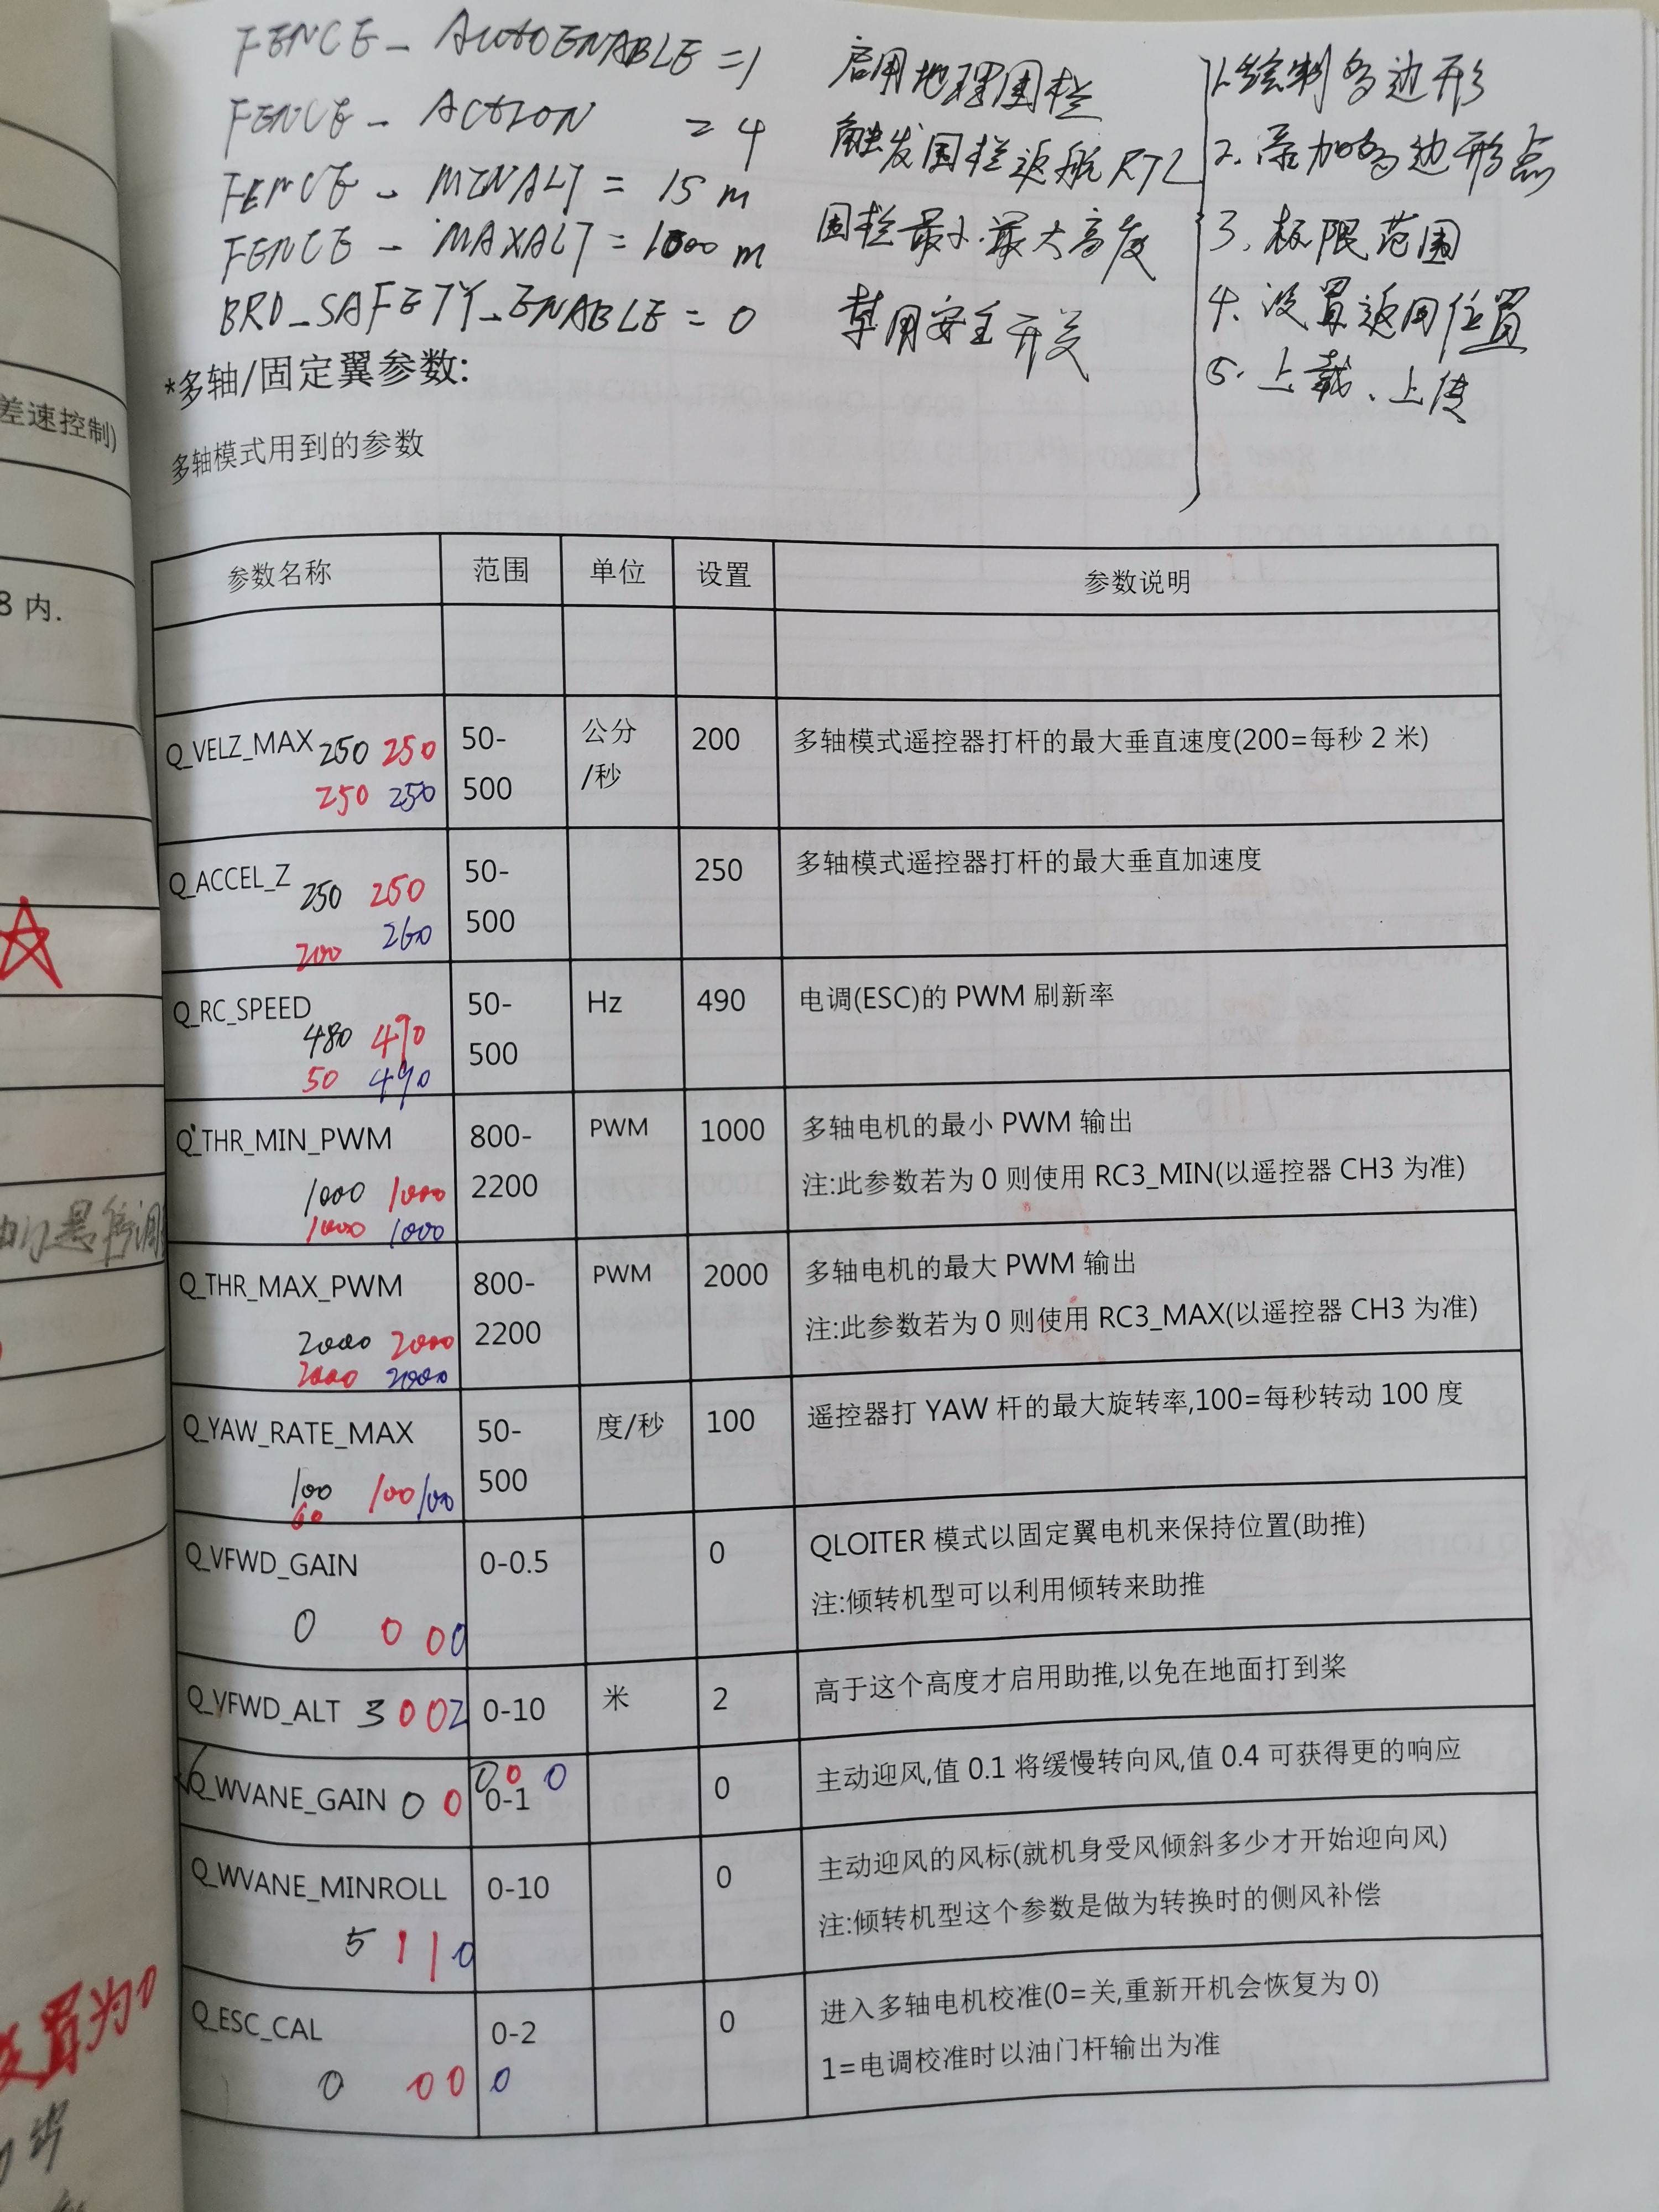 FENCE_AUTOENABLE=1 启用地理围栏
FENCE_ACTION =4 触发围栏返航RTL
FENCE_MINALT=15m
FENCE_MAXALT=1000m 围栏最小.最大高度
BRD_SAFETY_ENABLE=0 禁用安全开关
1.绘制多边形
2.添加多边形点
3.极限范围
4.设置返回位置
5.上载、上传
*多轴/固定翼参数:
多轴模式用到的参数
参数名称 范围 单位 设置 参数说明
Q_VELZ_MAX 250 250 50- 公分 200 多轴模式遥控器打杆的最大垂直速度(200=每秒2米)
250 250 500 /秒
Q_ACCEL_Z 250 250 50- 250 多轴模式遥控器打杆的最大垂直加速度
200 260 500
Q_RC_SPEED 50- Hz 490 电调(ESC)的 PWM 刷新率
480 490 500
50 490
Q_THR_MIN_PWM 800- PWM 1000 多轴电机的最小 PWM 输出
1000 1000 2200 注:此参数若为0则使用 RC3_MIN(以遥控器 CH3 为准)
1000 1000
Q_THR_MAX_PWM 800- PWM 2000 多轴电机的最大 PWM 输出
2000 2000 2200 注:此参数若为0则使用 RC3_MAX(以遥控器 CH3 为准)
2000 2000
Q_YAW_RATE_MAX 50- 度/秒 100 遥控器打 YAW 杆的最大旋转率,100=每秒转动 100 度
100 100 100 500
60
Q_VFWD_GAIN 0-0.5 0 QLOITER 模式以固定翼电机来保持位置(助推)
0 0 0 0 注:倾转机型可以利用倾转来助推
Q_VFWD_ALT 3 0 0 2 0-10 米 2 高于这个高度才启用助推,以免在地面打到桨
0 0 0
Q_WVANE_GAIN 0 0 0-1 0 主动迎风,值 0.1 将缓慢转向风,值 0.4 可获得更的响应
Q_WVANE_MINROLL 0-10 0 主动迎风的风标(就机身受风倾斜多少才开始迎向风)
5 1 1 0 注:倾转机型这个参数是做为转换时的侧风补偿
Q_ESC_CAL 0-2 0 进入多轴电机校准(0=关,重新开机会恢复为 0)
0 0 0 0 1=电调校准时以油门杆输出为准
差速控制)
8 内.
置为0